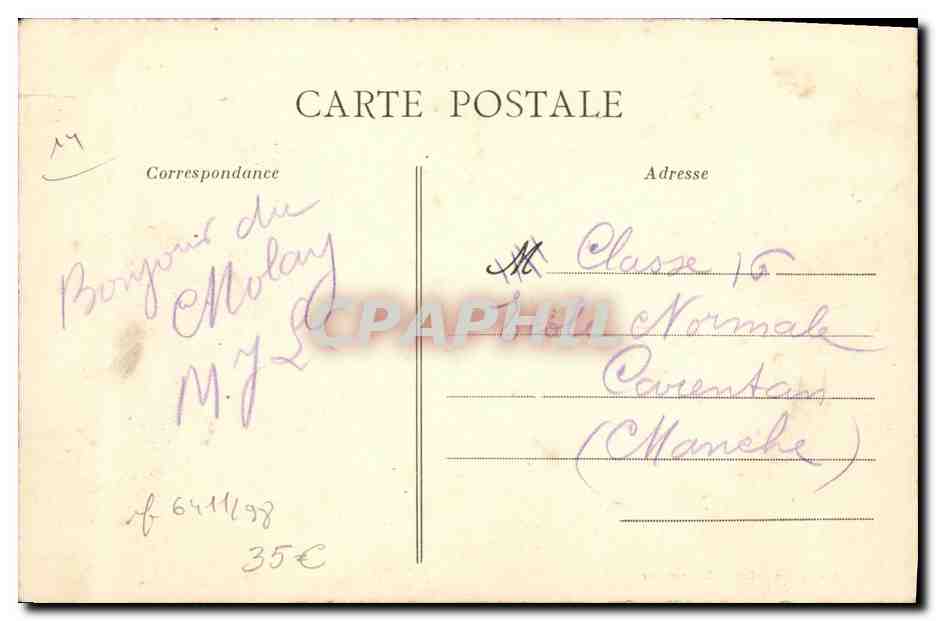 CARTE POSTALE
14
Correspondance
Adresse
Bonjour du
Molay
M. J L
M Classe 16
Ecole Normale
Carentan
(Manche)
CPAPHIL
ref 6411/98
35€